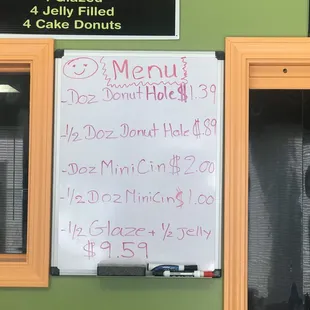 4 Jelly Filled
4 Cake Donuts
Menu
-Doz Donut Hole $1.39
-1/2 Doz Donut Hole $.89
-Doz MiniCin $2.00
-1/2 Doz MiniCin $1.00
-1/2 Glaze + 1/2 Jelly
$9.59